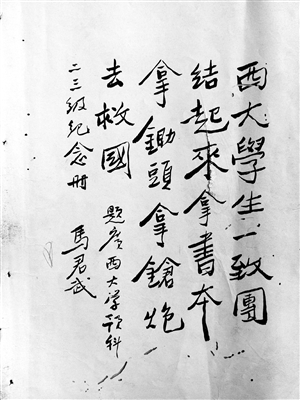 西大學生一致團
結起來拿書本
拿鋤頭拿鎗炮
去救國
題廣西大学預科
二三级紀念册
馬君武